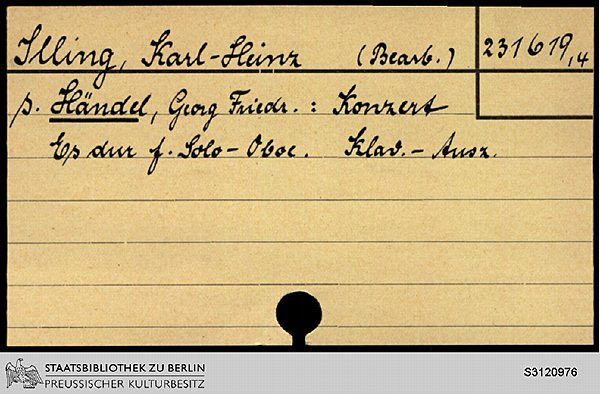 Illing, Karl-Heinz (Bearb.) 231619,4
s. Händel, Georg Friedr. : Konzert
Es dur f. Solo-Oboe. Klav.-Ausz.
STAATSBIBLIOTHEK ZU BERLIN
PREUSSISCHER KULTURBESITZ
S3120976